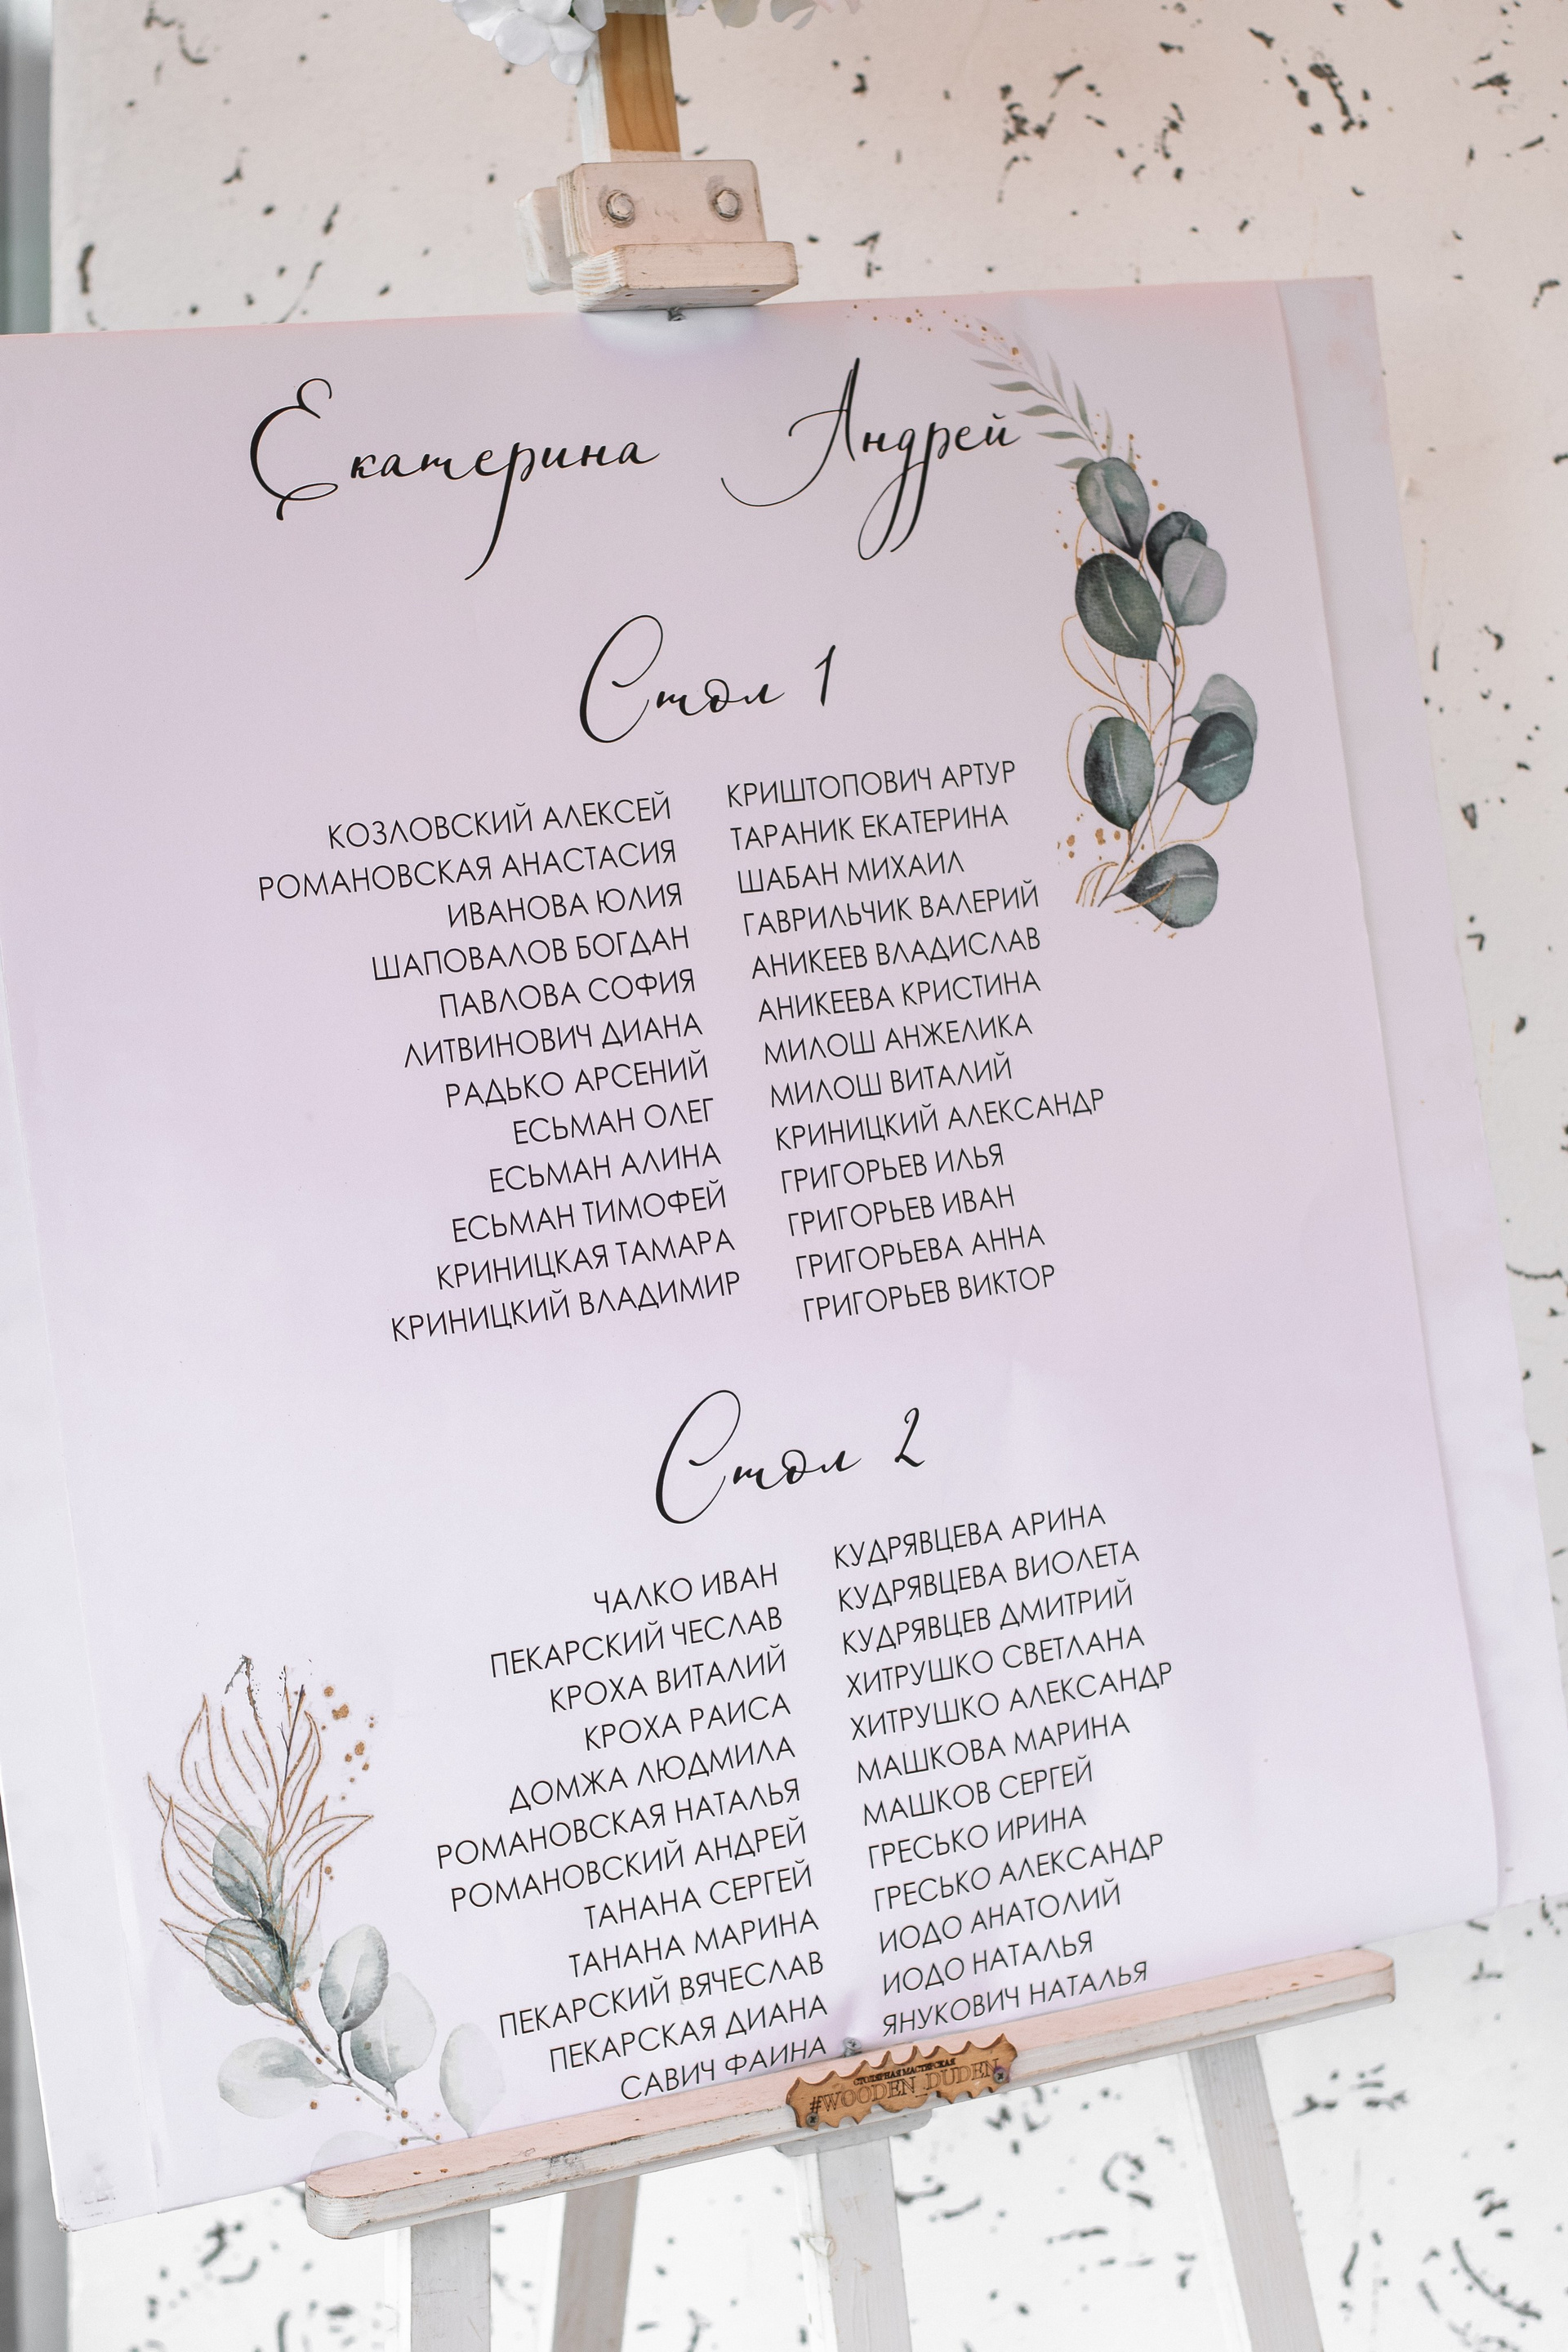 Екатерина Андрей
Стол 1
КОЗЛОВСКИЙ АЛЕКСЕЙ
РОМАНОВСКАЯ АНАСТАСИЯ
ИВАНОВА ЮЛИЯ
ШАПОВАЛОВ БОГДАН
ПАВЛОВА СОФИЯ
ЛИТВИНОВИЧ ДИАНА
РАДЬКО АРСЕНИЙ
ЕСЬМАН ОЛЕГ
ЕСЬМАН АЛИНА
ЕСЬМАН ТИМОФЕЙ
КРИНИЦКАЯ ТАМАРА
КРИНИЦКИЙ ВЛАДИМИР
КРИШТОПОВИЧ АРТУР
ТАРАНИК ЕКАТЕРИНА
ШАБАН МИХАИЛ
ГАВРИЛЬЧИК ВАЛЕРИЙ
АНИКЕЕВ ВЛАДИСЛАВ
АНИКЕЕВА КРИСТИНА
МИЛОШ АНЖЕЛИКА
МИЛОШ ВИТАЛИЙ
КРИНИЦКИЙ АЛЕКСАНДР
ГРИГОРЬЕВ ИЛЬЯ
ГРИГОРЬЕВ ИВАН
ГРИГОРЬЕВА АННА
ГРИГОРЬЕВ ВИКТОР
Стол 2
ЧАЛКО ИВАН
ПЕКАРСКИЙ ЧЕСЛАВ
КРОХА ВИТАЛИЙ
КРОХА РАИСА
ДОМЖА ЛЮДМИЛА
РОМАНОВСКАЯ НАТАЛЬЯ
РОМАНОВСКИЙ АНДРЕЙ
ТАНАНА СЕРГЕЙ
ТАНАНА МАРИНА
ПЕКАРСКИЙ ВЯЧЕСЛАВ
ПЕКАРСКАЯ ДИАНА
САВИЧ ФАИНА
КУДРЯВЦЕВА АРИНА
КУДРЯВЦЕВА ВИОЛЕТА
КУДРЯВЦЕВ ДМИТРИЙ
ХИТРУШКО СВЕТЛАНА
ХИТРУШКО АЛЕКСАНДР
МАШКОВА МАРИНА
МАШКОВ СЕРГЕЙ
ГРЕСЬКО ИРИНА
ГРЕСЬКО АЛЕКСАНДР
ИОДО АНАТОЛИЙ
ИОДО НАТАЛЬЯ
ЯНУКОВИЧ НАТАЛЬЯ
СТОЛЯРНАЯ МАСТЕРСКАЯ
#WOODEN_DUDEN